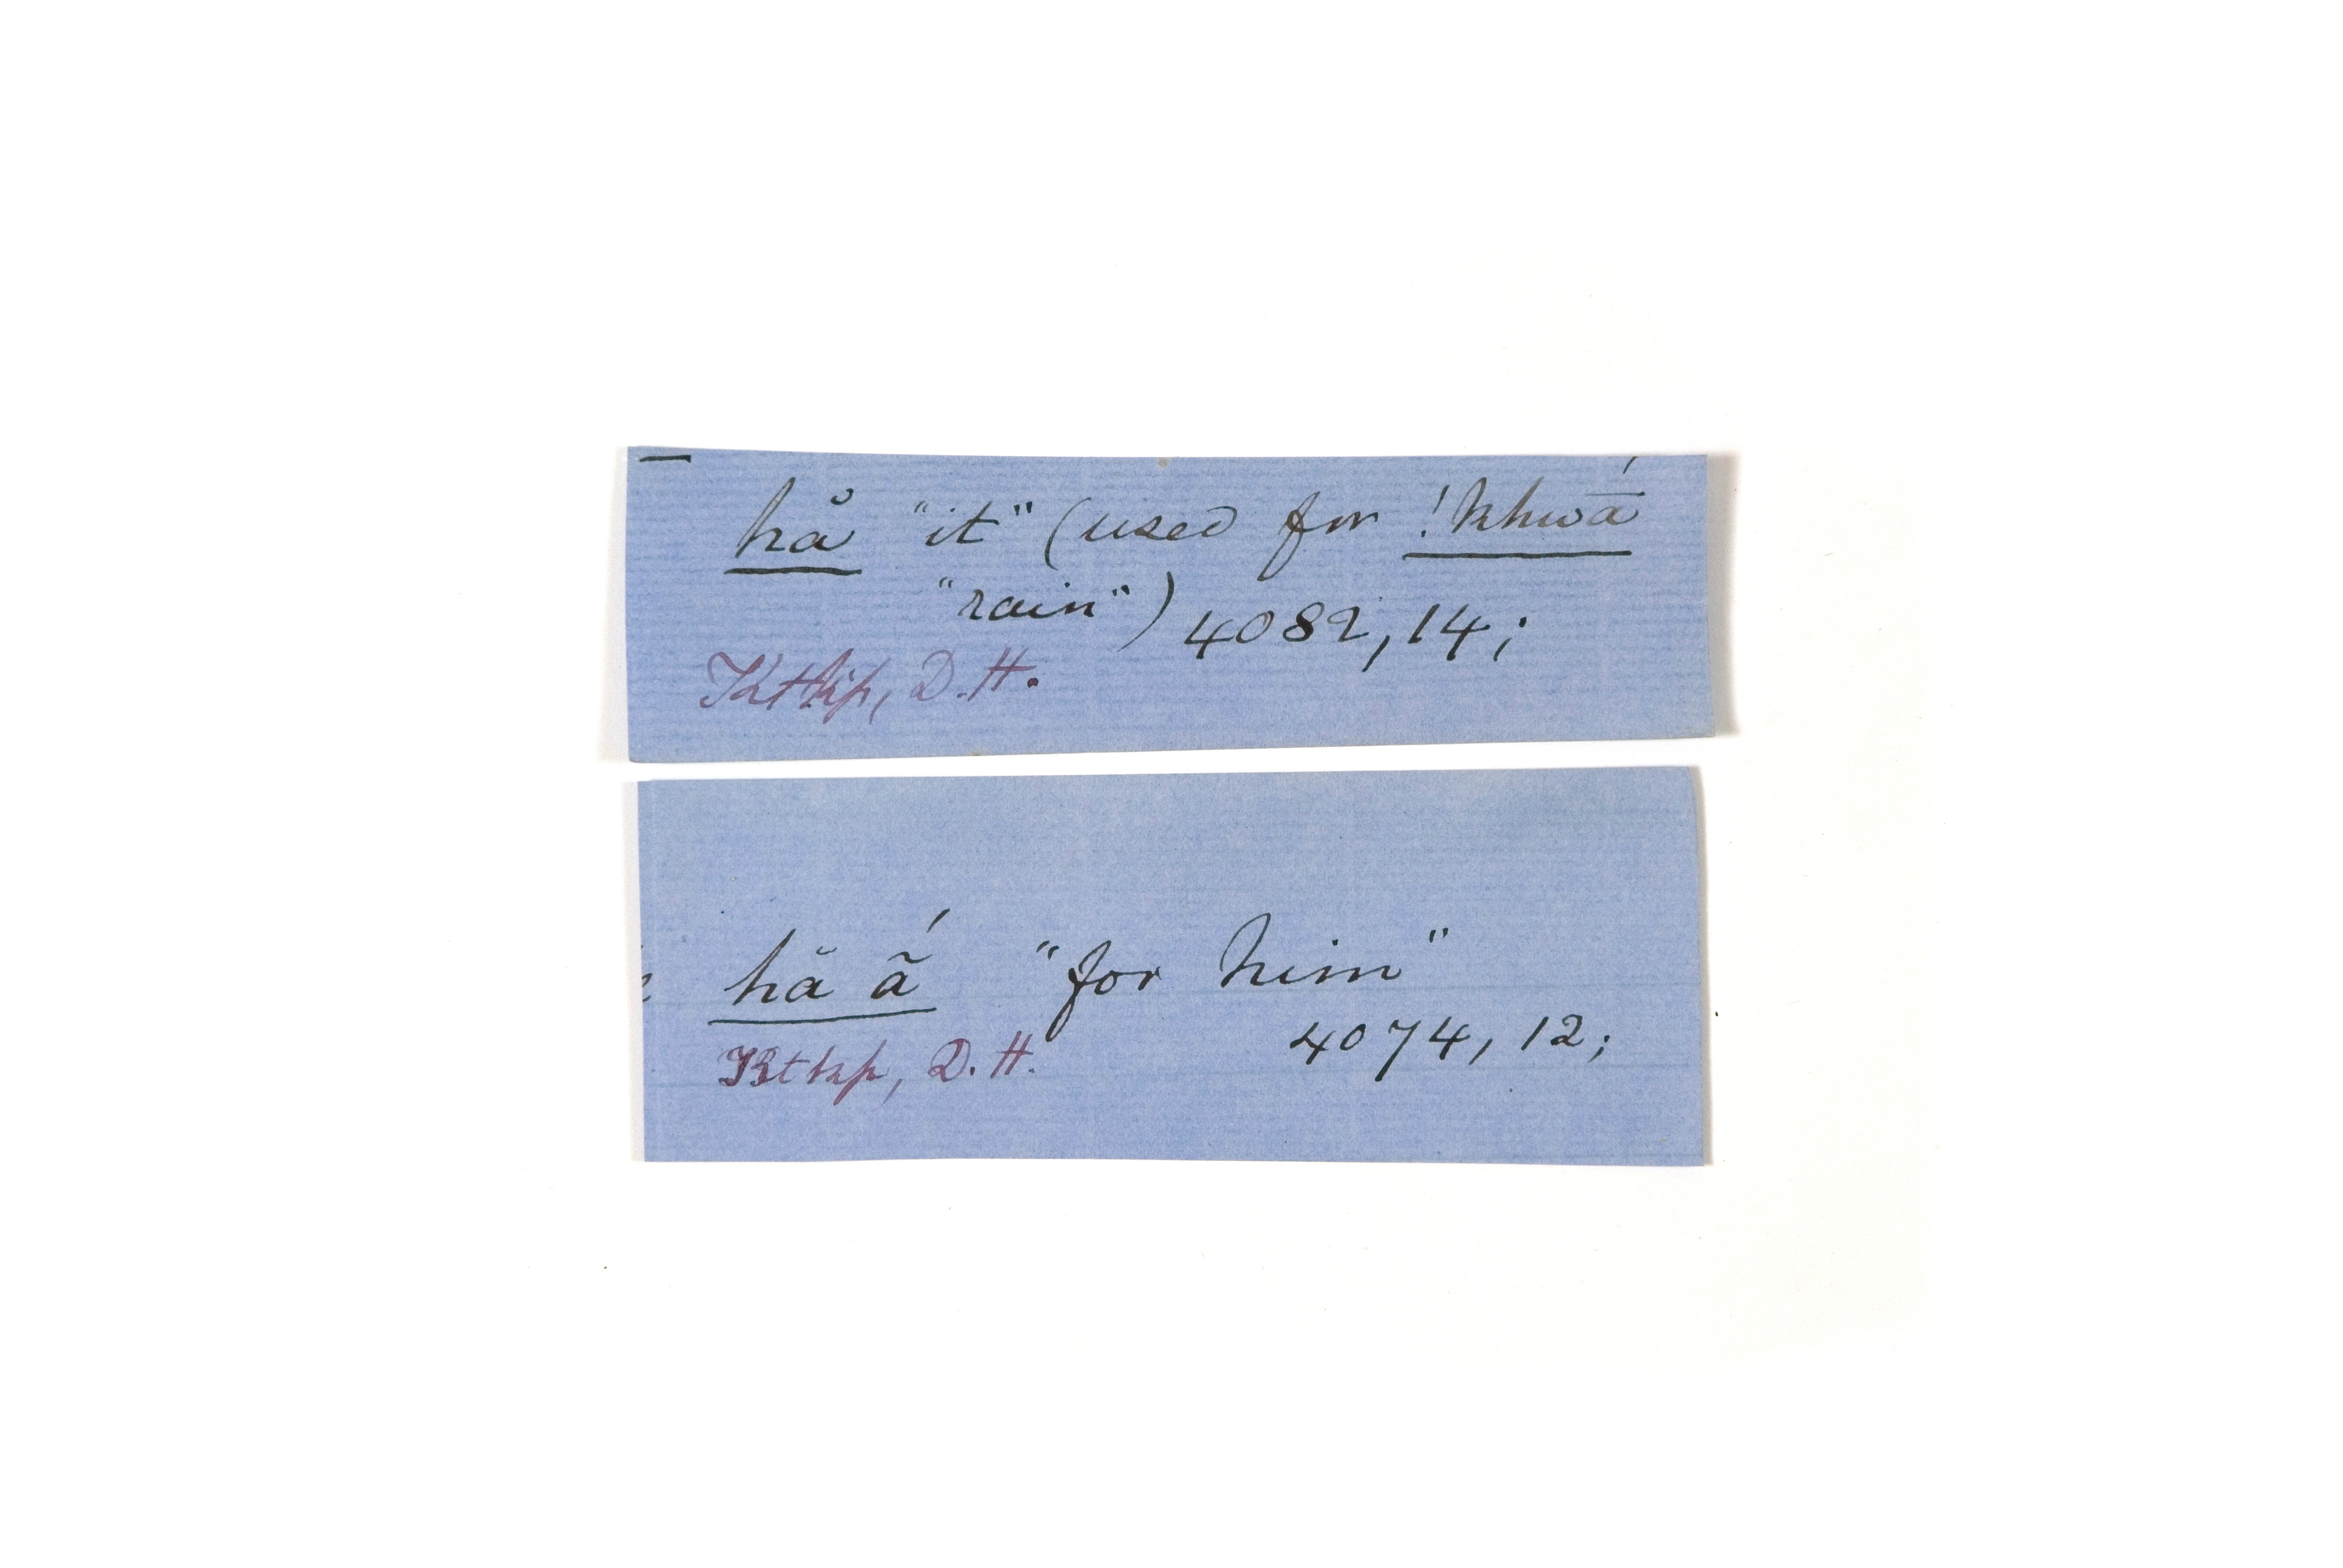 hă "it" (used for !khwā́
"rain") 4082, 14;
Ktthp, D. H.
hă ã́ "for him"
4074, 12;
Ktthp, D. H.